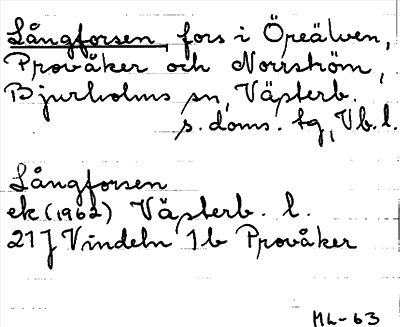 Långforsen, fors i Öreälven,
Provåker och Norrström,
Bjurholms sn, Västerb.
s. doms. tg, Vb. l.
Långforsen
ek (1962) Västerb. l.
21 J Vindeln 1b Provåker
ML-63